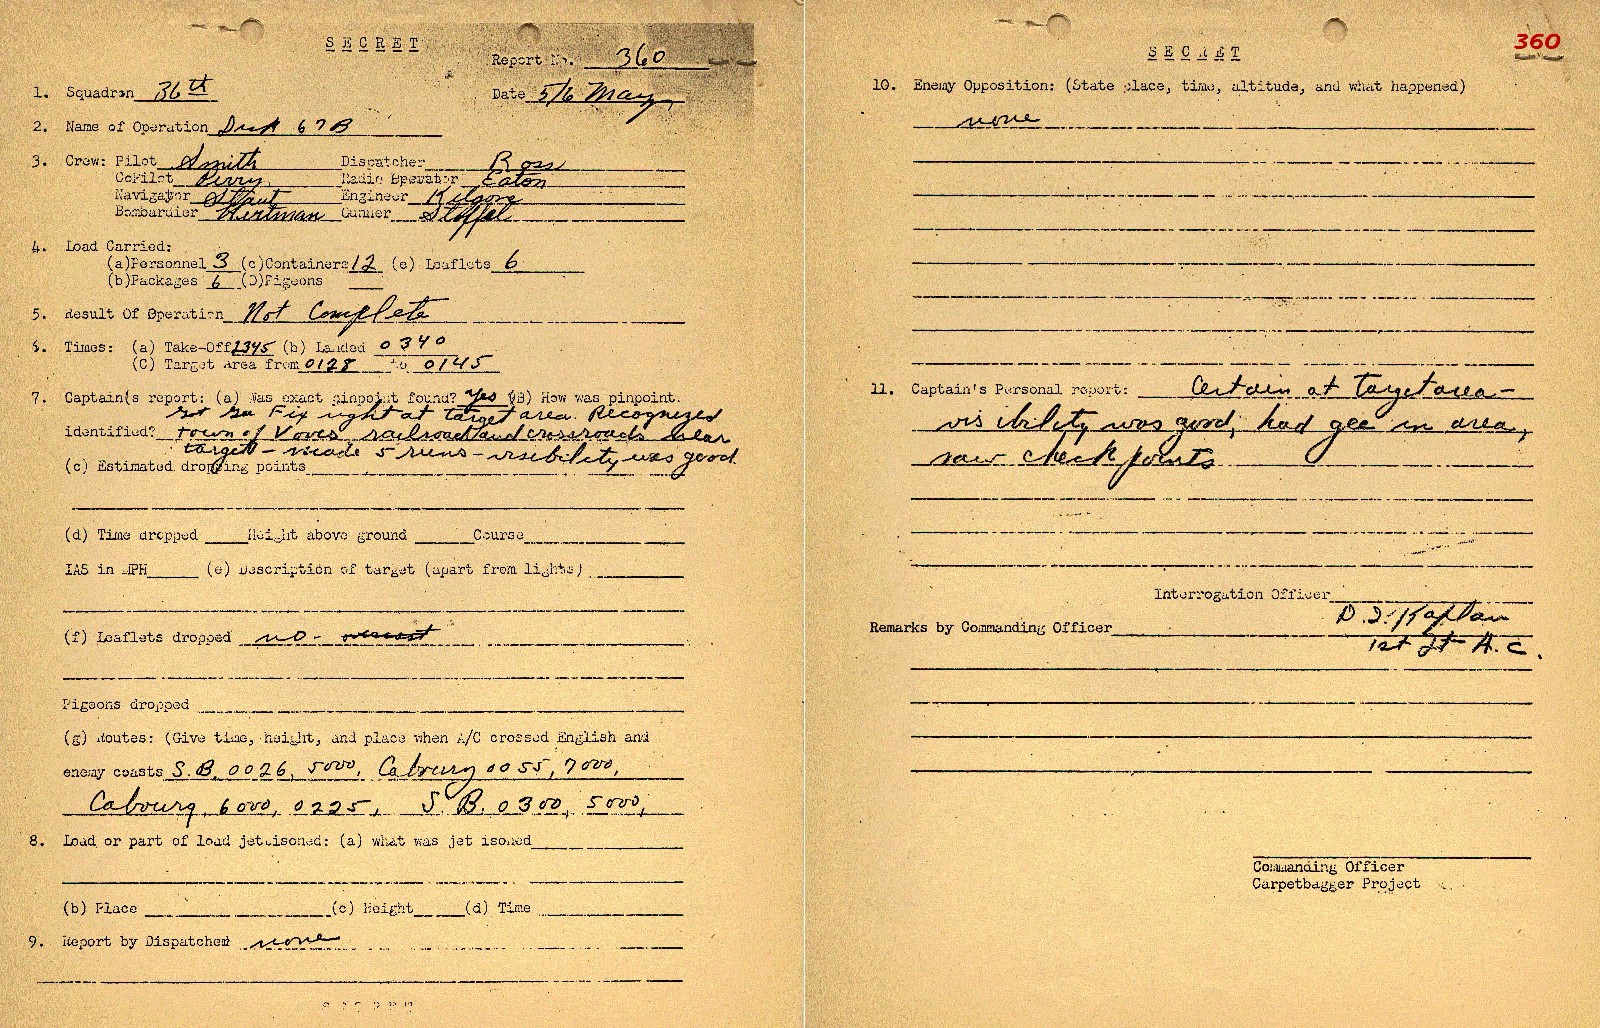 SECRET
Report No. 360
1. Squadron 36th Date 5/6 May
2. Name of Operation 67B
3. Crew: Pilot Smith Dispatcher Ross
CoPilot Perry Radio Operator Eaton
Navigator Engineer Kilgore
Bombardier Hertman Gunner Stoffel
4. Load Carried:
(a)Personnel 3 (c)Containers 12 (e) Leaflets 6
(b)Packages 6 (D)Pigeons
5. Result Of Operation Not Complete
6. Times: (a) Take-Off 2345 (b) Landed 0340
(C) Target Area from 0128 to 0145
7. Captain's report: (a) Was exact pinpoint found? Yes (B) How was pinpoint.
Got Gee Fix right at target area. Recognized
identified? town of Voves railroad and crossroads near
target - made 5 runs - visibility was good.
(c) Estimated dropping points
(d) Time dropped Height above ground Course
IAS in MPH (e) Description of target (apart from lights)
(f) Leaflets dropped no -
Pigeons dropped
(g) Routes: (Give time, height, and place when A/C crossed English and
enemy coasts S.B. 0026, 5000, Cabourg 0055, 7000,
Cabourg, 6000, 0225, S.B. 0300, 5000,
8. Load or part of load jettisoned: (a) what was jet isoned
(b) Place (c) Height (d) Time
9. Report by Dispatched none
SECRET
SECRET
360
10. Enemy Opposition: (State place, time, altitude, and what happened)
none
11. Captain's Personal report: Certain at target area -
visibility was good; had gee in area,
saw check points
Interrogation Officer
D. I. Kaplan
Remarks by Commanding Officer
1st Lt A.C.
Commanding Officer
Carpetbagger Project